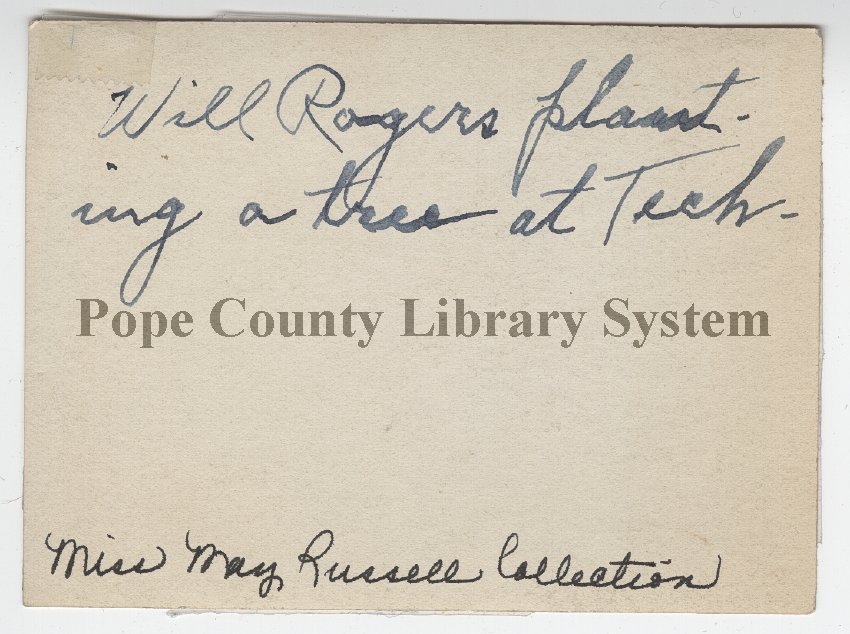 Will Rogers plant-
ing a tree at Tech-
Pope County Library System
Miss May Russell Collection